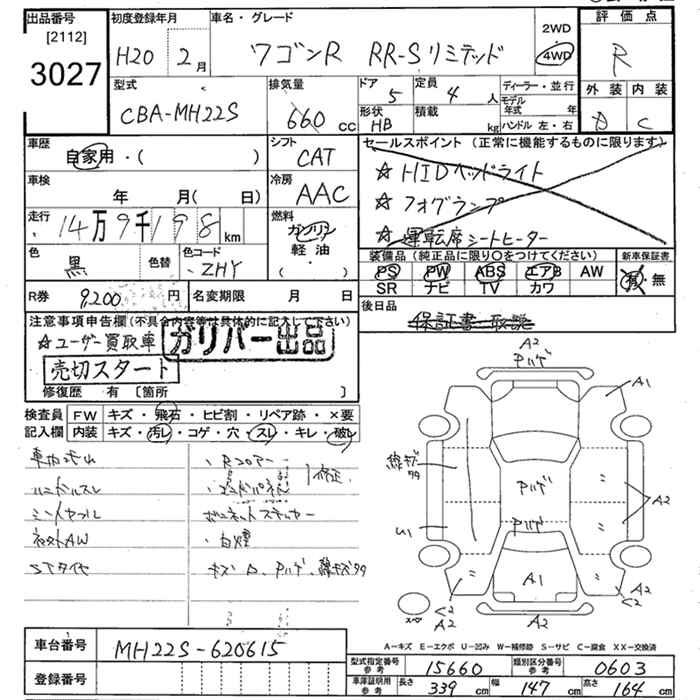 出品番号
[2112]
3027
初度登録年月
H20 2月
車名・グレード
ワゴンR RR-Sリミテッド
2WD
4WD
評価点
R
型式
CBA-MH22S
排気量
660 cc
ドア
5
定員
4 人
形状
HB
積載
kg
ディーラー・並行
モデル年式 年
ハンドル 左・右
外装 内装
D C
車歴
自家用・( )
シフト
CAT
セールスポイント (正常に機能するものに限ります)
☆HIDヘッドライト
☆フォグランプ
☆運転席シートヒーター
車検
年 月( 日)
冷房
AAC
走行
14万9千198km
燃料
ガソリン
軽油
( )
色
黒
色替
色コード
ZHY
装備品(純正品に限り○をつけてください)
PS PW ABS エアB AW
SR ナビ TV カワ
新車保証書
有・無
R券
9,200 円
名変期限 月 日
後日品
保証書・取説
注意事項申告欄(不具合内容等は具体的に記入して下さい)
☆ユーザー買取車
ガリバー出品
売切スタート
修復歴 有[箇所 ]
検査員 FW キズ・飛石・ヒビ割・リペア跡・×要
記入欄 内装 キズ・汚レ・コゲ・穴・スレ・キレ・破レ
ハンドルスレ
社外AW
STタイヤ
・Rフロアー
修正
マグネットステッカー
・白煙
A2
Pハゲ
A1
線キズ
タタ
Pハゲ
A2
Pハゲ
U1
A1
A2
C2
A2
A2
C2
A-キズ E-エクボ U-凹み W-補修跡 S-サビ C-腐食 XX-交換済
車台番号
MH22S-620615
登録番号
型式指定番号 参考
15660
類別区分番号 参考
0603
車庫証明用 参考
長さ 339cm
幅 147cm
高さ 164cm